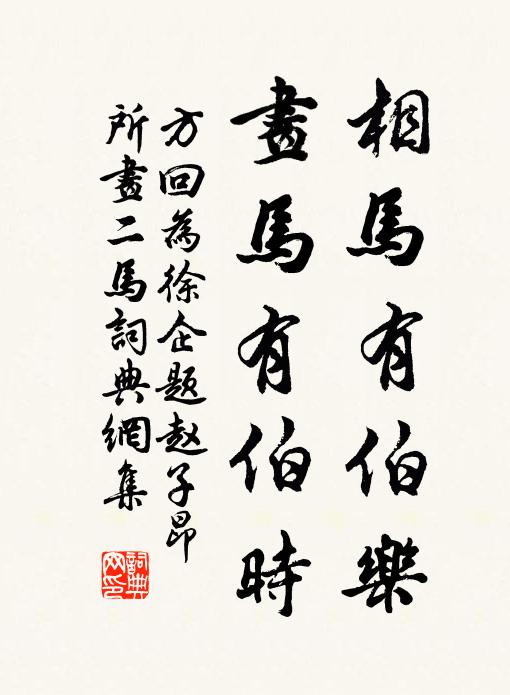 相馬有伯樂
畫馬有伯時
方回為徐企題赵子昂
所畫二馬詞典網集
詞典
网印